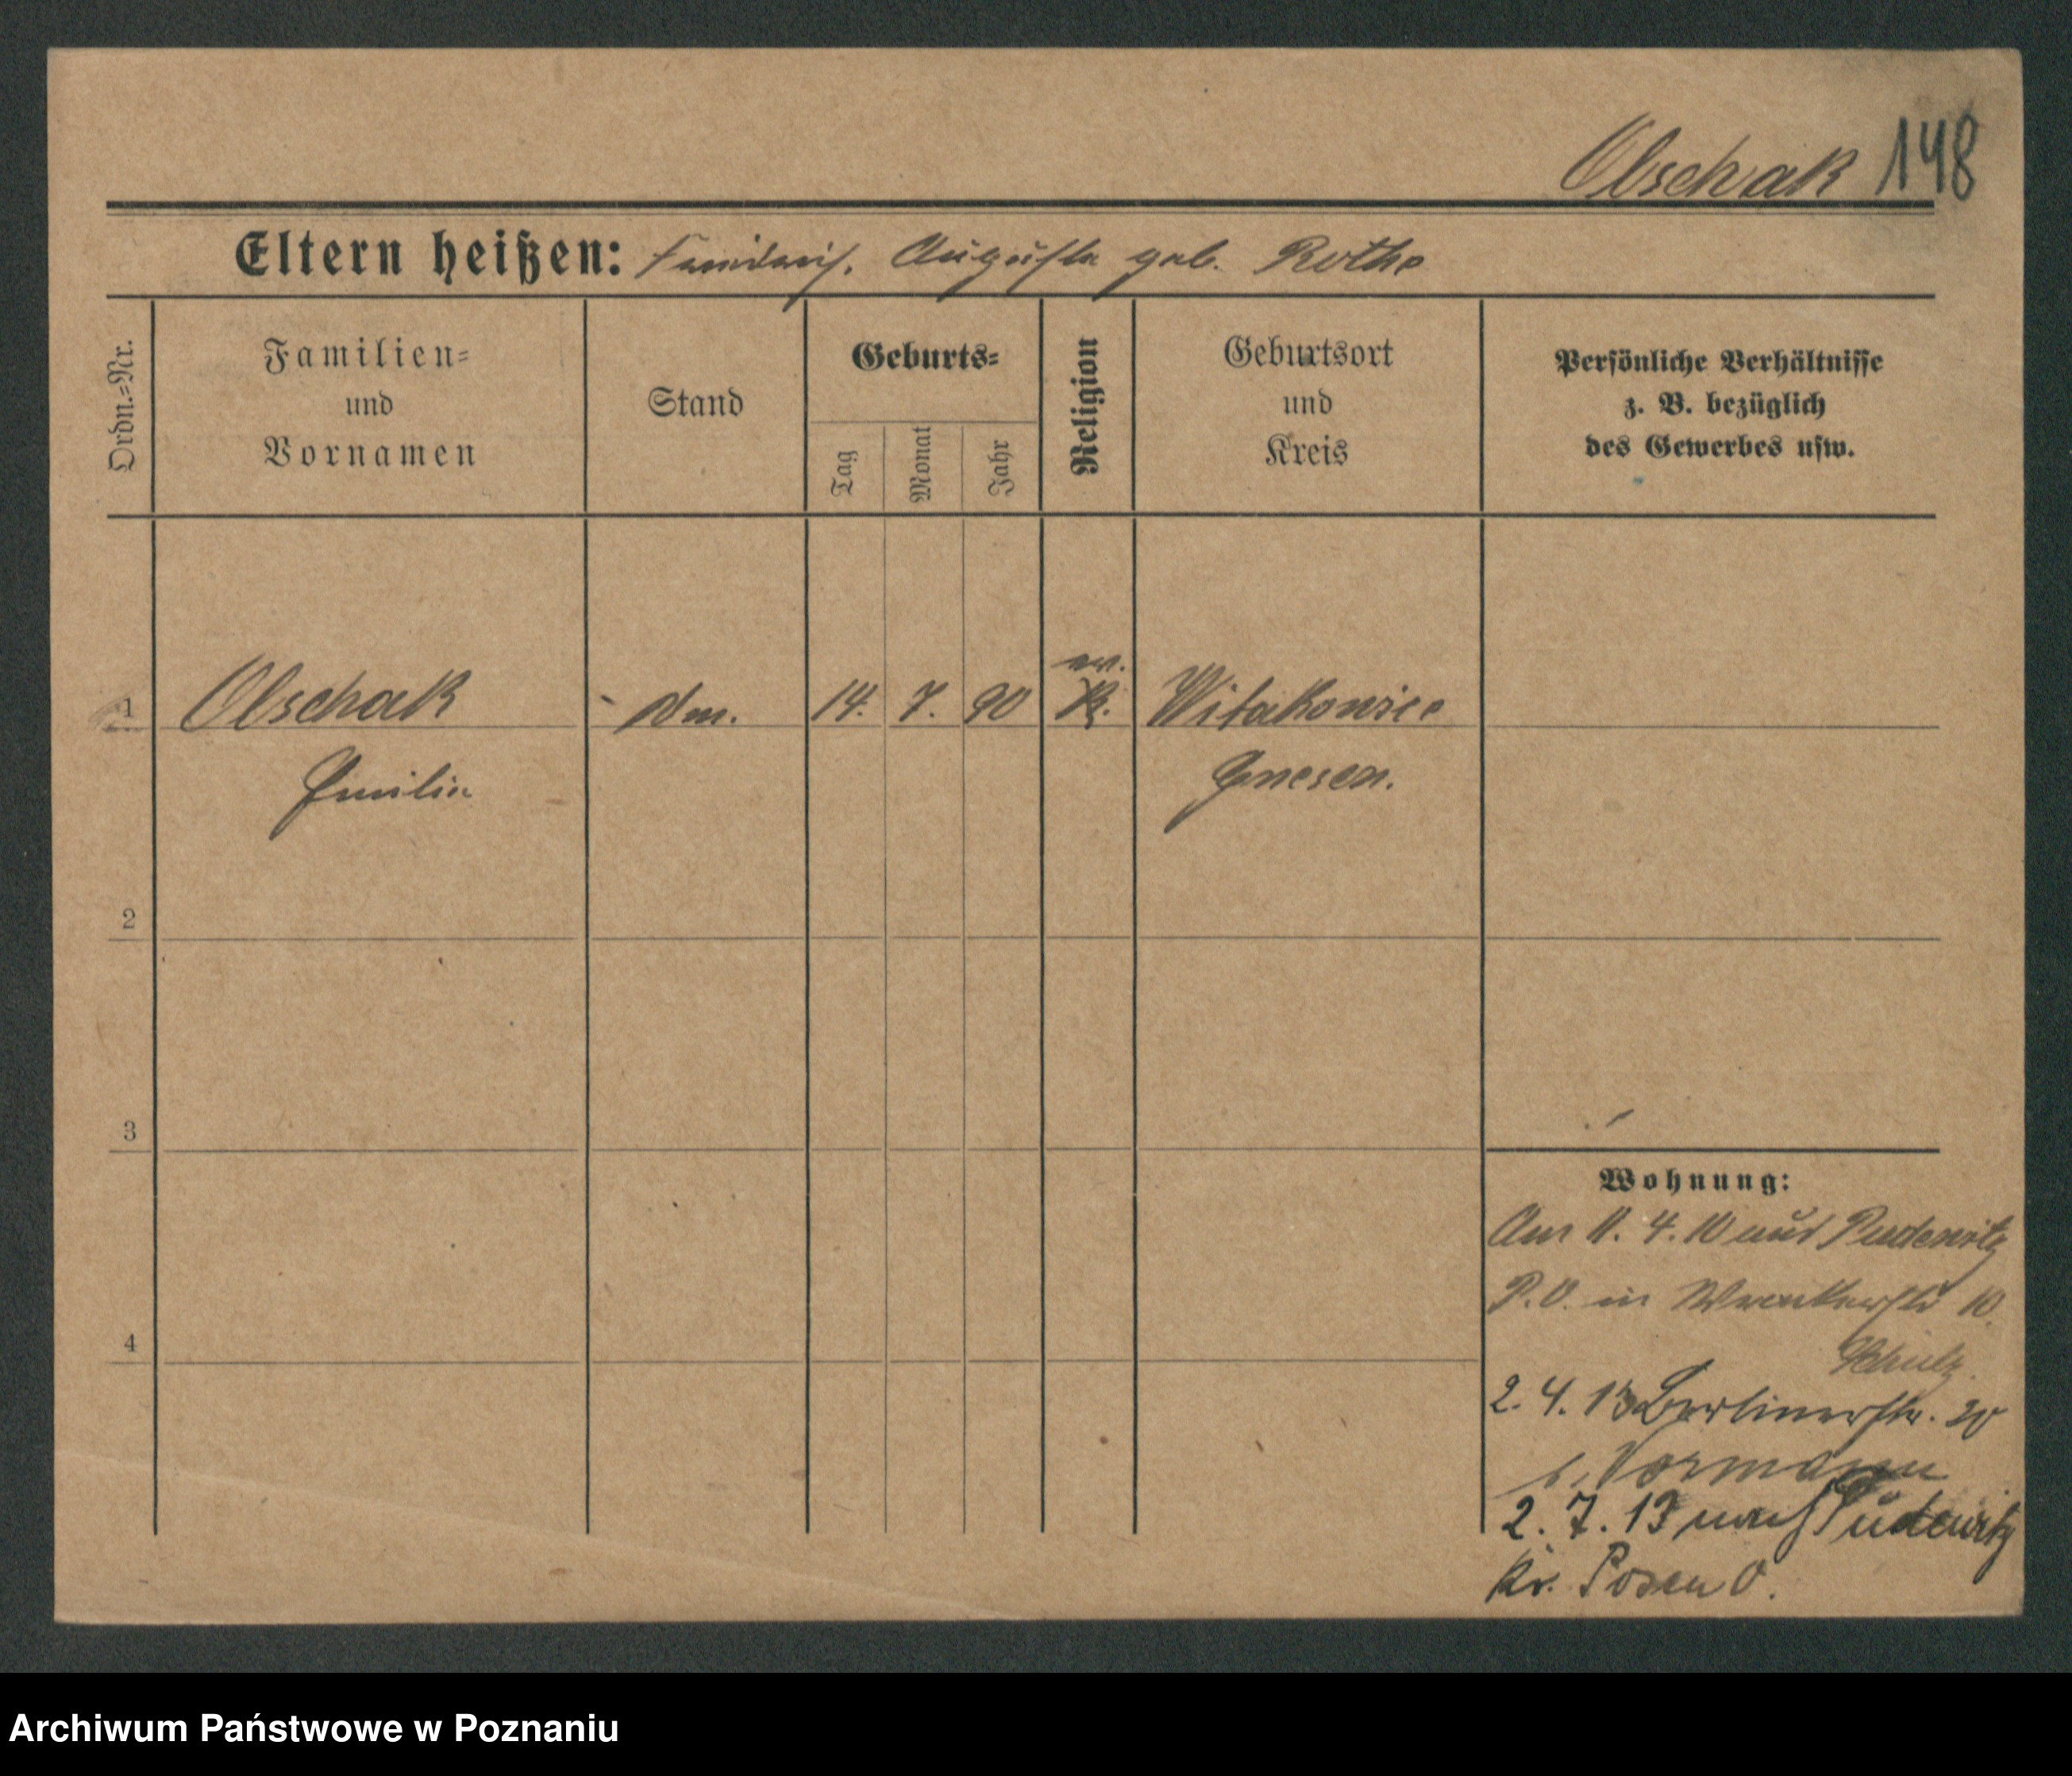 Olschak 148
Eltern heißen: Friedrich. Auguste geb. Rothe
Ordn.=Nr.
Familien=
und
Vornamen
Stand
Geburts=
Tag
Monat
Jahr
Religion
Geburtsort
und
Kreis
Persönliche Verhältnisse
z. B. bezüglich
des Gewerbes usw.
ev.
1 Olschak 14. 7. 90 K. Witakowice
Emilie Gnesen.
2
3
4
Wohnung:
Am 11. 4. 10 aus Pudewitz
P.O. in Wronkerstr 10.
Schulz
2. 4. 13 Berlinerstr. 20
b. Normann
2. 7. 13 nach Pudewitz
Kr. Posen O.
Archiwum Państwowe w Poznaniu